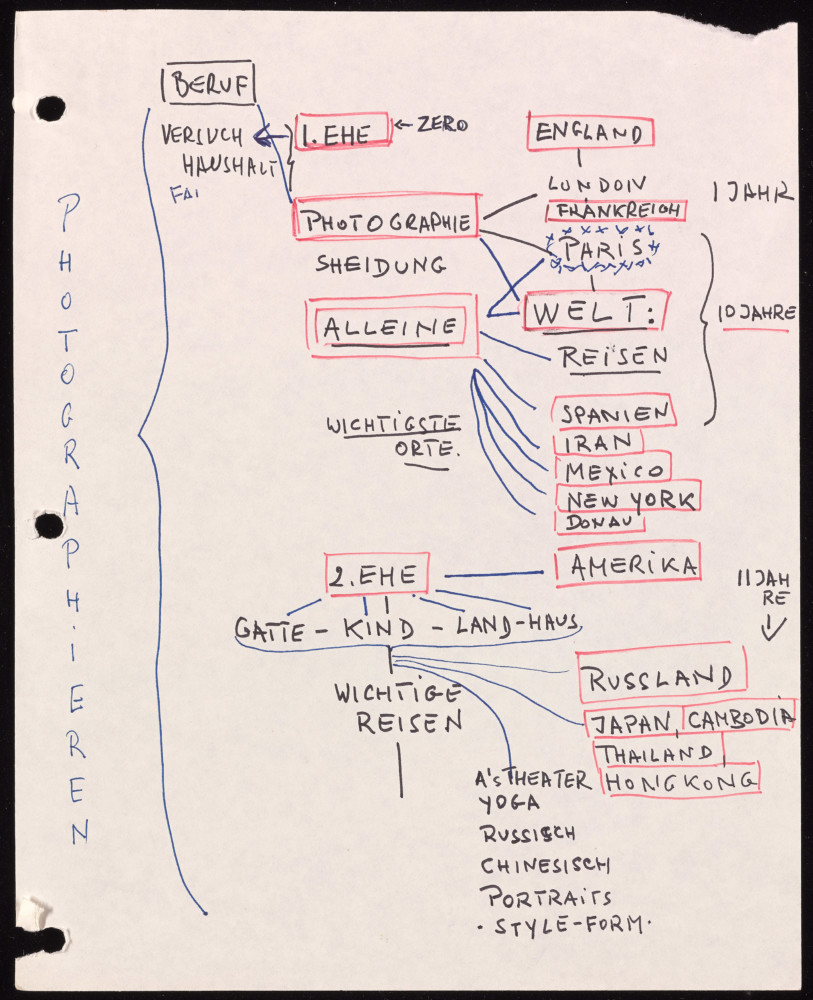 BERUF
VERSUCH
HAUSHALT
FAI
1. EHE ← ZERO
ENGLAND
LONDON
1 JAHR
FRANKREICH
PHOTOGRAPHIE
PARIS
SHEIDUNG
WELT:
10 JAHRE
ALLEINE
REISEN
WICHTIGSTE
ORTE.
SPANIEN
IRAN
MEXICO
NEW YORK
DONAU
2. EHE
AMERIKA
11 JAH
RE
GATTE - KIND - LAND-HAUS
WICHTIGE
REISEN
RUSSLAND
JAPAN, CAMBODIA
THAILAND
HONGKONG
A's THEATER
YOGA
RUSSISCH
CHINESISCH
PORTRAITS
· STYLE-FORM ·
PHOTOGRAPHIEREN